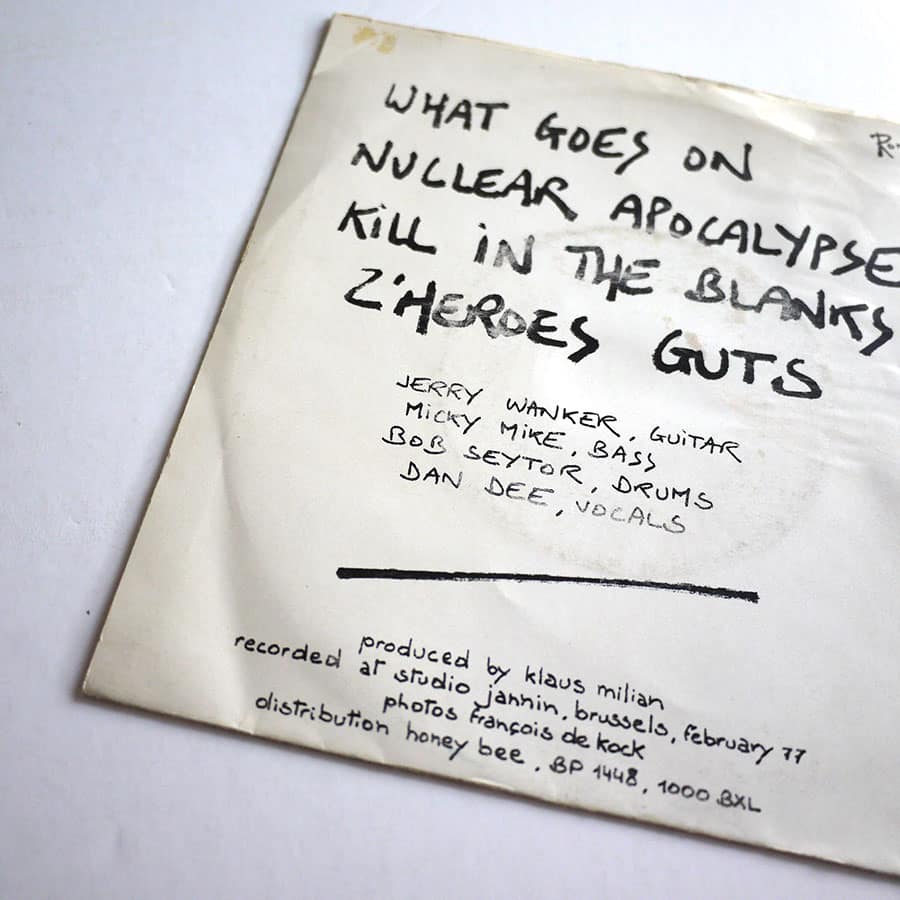 WHAT GOES ON
NUCLEAR APOCALYPSE
KiLL iN THE BLANKS
Z'HEROES GUTS
JERRY WANKER, GUiTAR
MiCKY MiKE, BASS
BOB SEYTOR, DRUMS
DAN DEE, VOCALS
produced by klaus milian
recorded at studio jannin, brussels, february 77
photos françois de kock
distribution honey bee, BP 1448, 1000 BXL